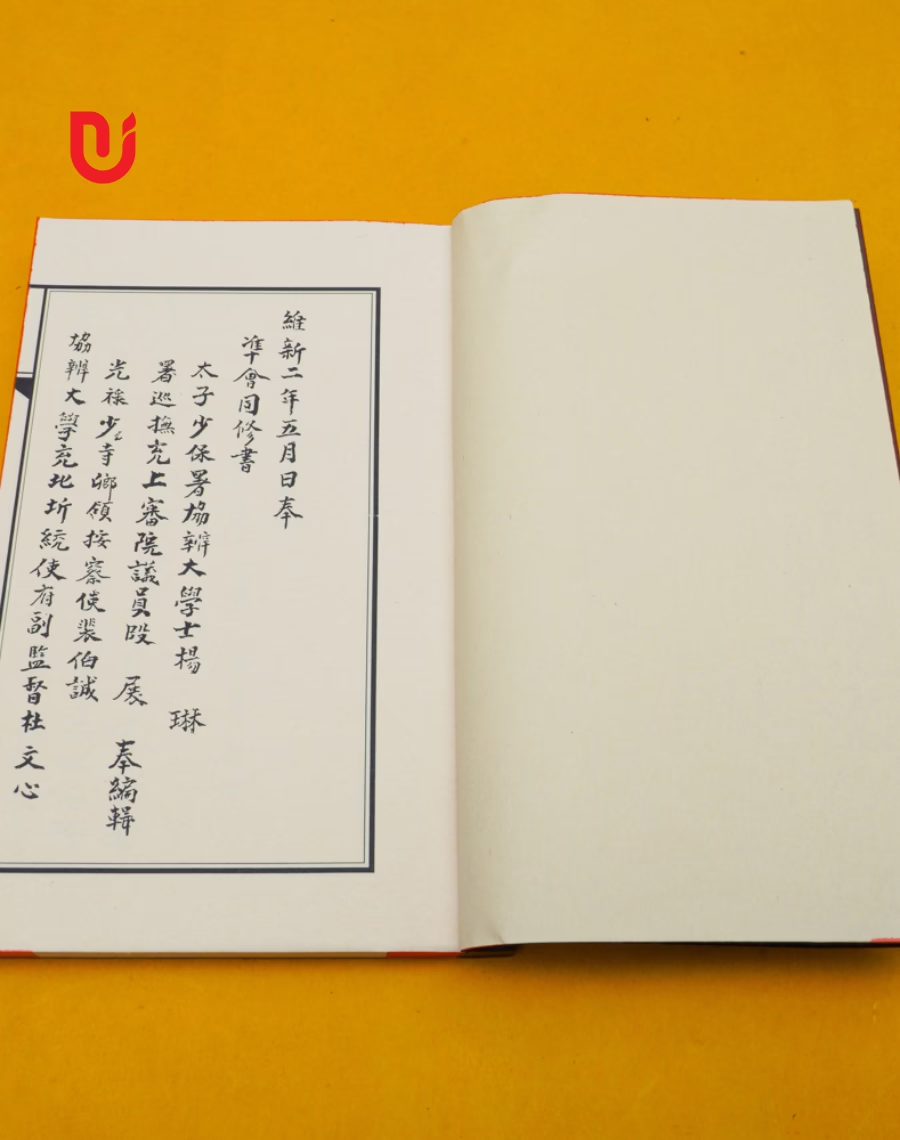 維新二年五月日奉
準會同修書
太子少保署協辨大學士楊 琳
署巡撫充上審院議員段 展 奉編輯
光祿少寺卿領按察使裴伯誠
協辨大學充北圻統使府副監督杜文心